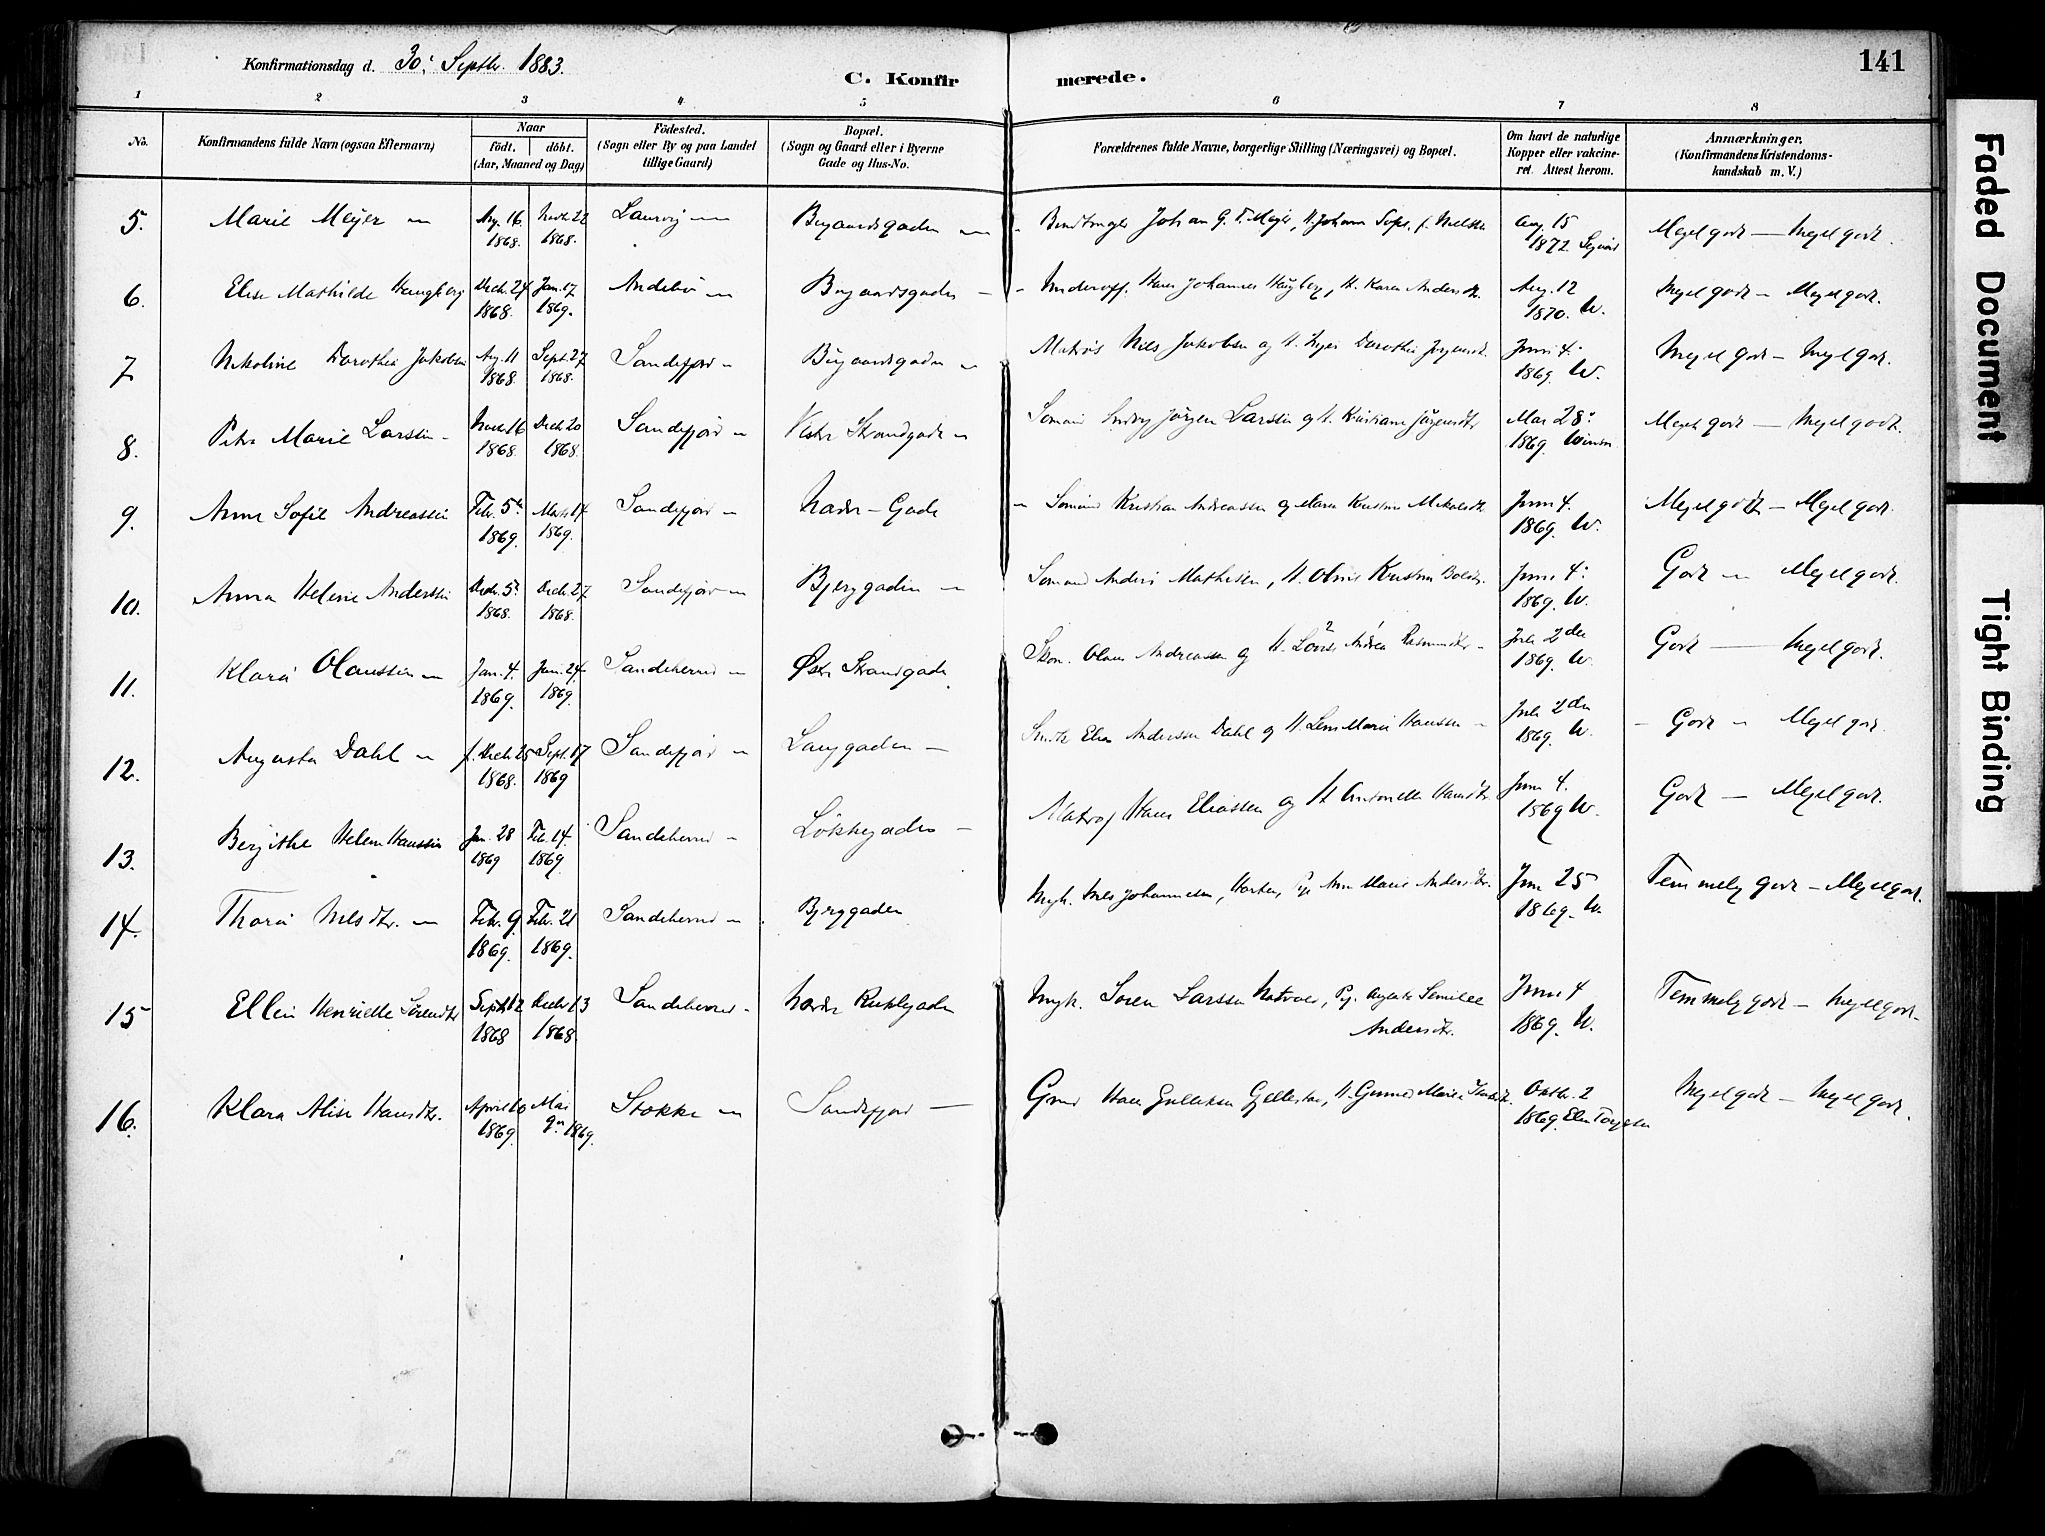 141
Konfirmationsdag d. 30. Septbr. 1883.
C. Konfirmerede.
1 2 3 4 5 6 7 8
No.
Konfirmandens fulde Navn (ogsaa Efternavn)
Naar
födt. döbt.
(Aar, Maaned og Dag)
Födested.
(Sogn eller By og paa Landet
tillige Gaard)
Bopæl.
(Sogn og Gaard eller i Byerne
Gade og Hus-No.
Forældrenes fulde Navne, borgerlige Stilling (Næringsvei) og Bopæl.
Om havt de naturlige
Kopper eller vakcine-
ret. Attest herom.
Anmærkninger.
(Konfirmandens Kristendoms-
kundskab m. V.)
5. Marie Meyer Aug. 16. 1868. Novb. 22 1868. Laurvig Bugaardsgaden Johan G. Meyer, Aug 15 1872 Meget godt — Meget godt.
6. Elise Mathilde Haugberg Decb. 24 1868. Jan. 17 1869. Andebu Bugaardsgaden Underoff. Hans Johannes Haugberg, H. Karen Andersdtr. Aug. 12 1870. W. Meget godt — Meget godt.
7. Nikoline Dorothea Jakobsen Aug. 11 1868. Sept. 27 1868. Sandefjord Bugaardsgaden Matros Nils Jakobsen og H. Inger Dorothea Jørgensdt. Juni 4. 1869. W. Meget godt — Meget godt.
8. Petra Marie Larssen Novb. 16 1868. Decb. 20 1868. Sandefjord Vestre Strandgade Sømand Jørgen Larssen og H. Kristiane Jørgensdtr Mai 28. 1869. Meget godt — Meget godt.
9. Anna Sofie Andreassen Febr. 5. 1869. Marts 14 1869. Sandefjord Nedre-Gade Sømand Kristian Andreassen og Maren Kristine Juni 4. 1869. W. Meget godt — Meget godt.
10. Anna Helene Anderssen Decbr. 5. 1868. Decb. 27 1868. Sandefjord Bjerggaden Sømand Anders Mathisen, H. Kristine Juni 4. 1869. W. Godt — Meget godt.
11. Klara Olaussen Jan. 4. 1869. Jan. 24 1869. Sandeherred Østre Strandgade Olaus Andreassen og H. Andrea 2den 1869. W. Godt — Meget godt.
12. Augusta Dahl f. Decb. 25 1868. Sept. 17 1869 Sandefjord Langgaden Elias Anderssen Dahl og H. Marie Hanssen 2den 1869. W. Godt — Meget godt.
13. Bergithe Helene Hanssen Jan. 28 1869 Feb. 14. 1869 Sandeherred Løkkegaden Matros Hans Eliassen og H. Antonette Hansdtr. Juni 4. 1869 W. Godt — Meget godt.
14. Thora Nilsdtr. Febr. 9 1869. Febr. 21 1869. Sandeherred Bjerggaden Ungk. Nils Johannesen, Horten, Pig. Ann Marie Andersdtr. Juni 25 1869. W. Temmelig godt — Meget godt.
15 Ellen Henriette Sørensdtr Septb 12 1868 Decbr. 13 1868. Sandeherred Ungk. Søren Larssen Pig. Andersdtr. Juni 4 1869. W. Temmelig godt — Meget godt.
16. Klara Alise Hansdtr. April 10 1869. Mai 9. 1869. Stokke Sandefjord Hans Gulliksen H. Gunild Marie Oktbr. 2 1869. Meget godt — Meget godt.
Faded Document
Tight Binding